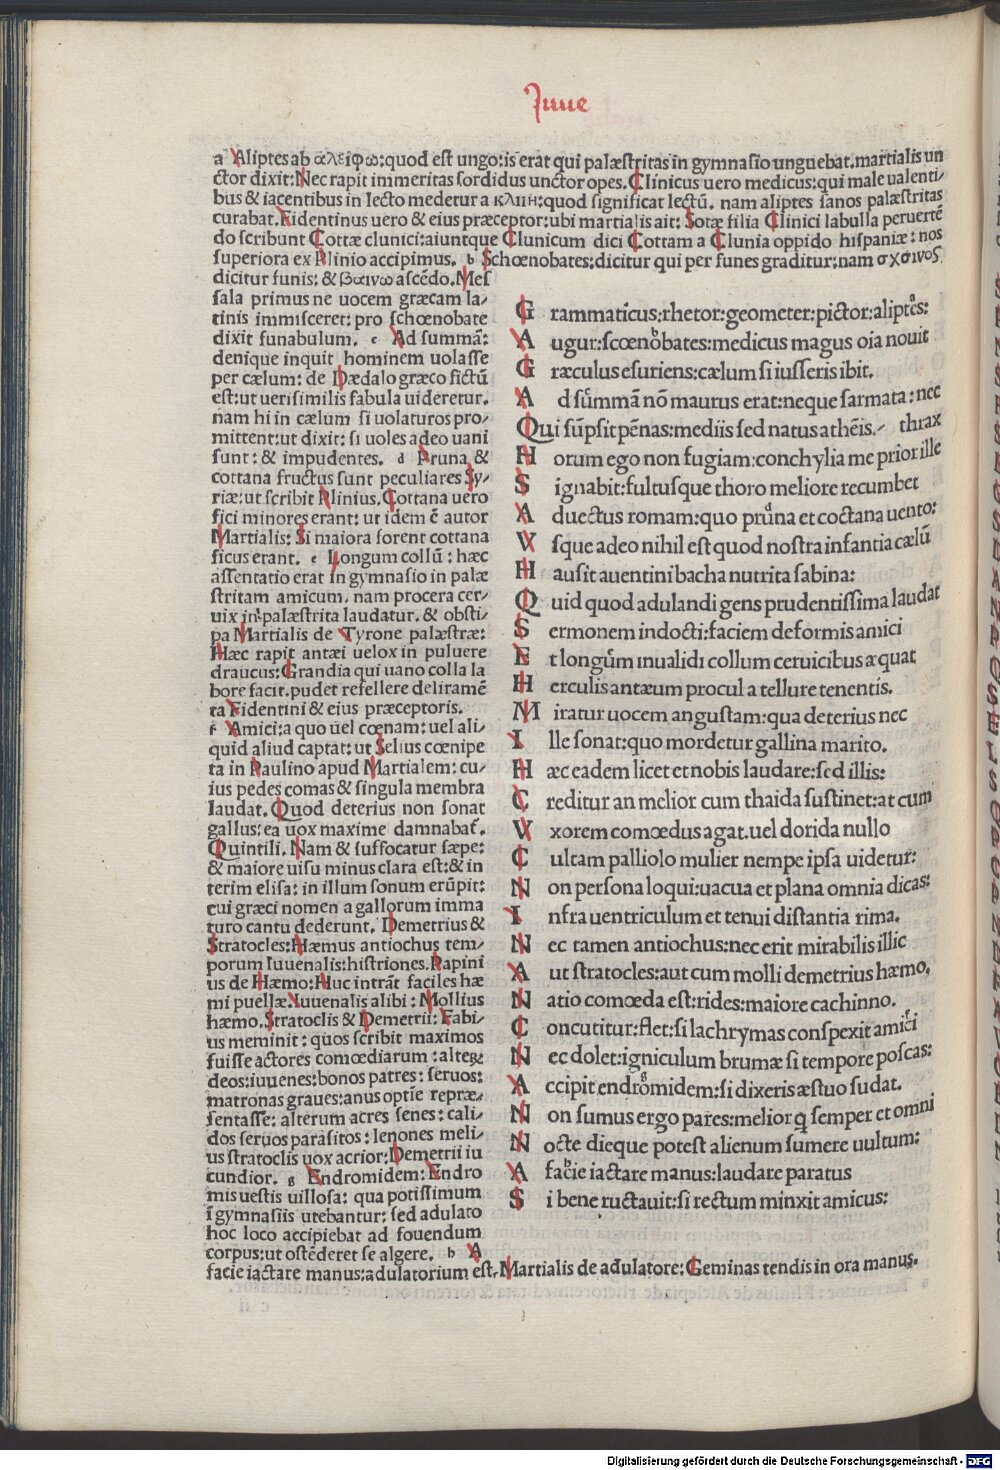 Juue
a Aliptes ab αλειφω:quod est ungo:is erat qui palæstritas in gymnasio unguebat.martialis un
ctor dixit:Nec rapit immeritas sordidus unctor opes.Clinicus uero medicus:qui male ualenti-
bus & iacentibus in lecto medetur a κλιпн:quod significat lectū. nam aliptes sanos palæstritas
curabat.Fidentinus uero & eius præceptor:ubi martialis ait: Sotæ filia Clinici labulla peruertē
do scribunt Cottæ clunici:aiuntque Clunicum dici Cottam a Clunia oppido hispaniæ: nos
superiora ex Plinio accipimus. b Schœnobates:dicitur qui per funes graditur:nam σχσινοσ
dicitur funis: & βαινω ascēdo.Mes
sala primus ne uocem græcam la-
tinis immisceret: pro schœnobate
dixit funabulum. c Ad summā:
denique inquit hominem uolasse
per cælum: de Dædalo græco fictū
est:ut uerisimilis fabula uideretur.
nam hi in cælum si uolaturos pro-
mittent:ut dixit: si uoles adeo uani
sunt: & impudentes. d Pruna &
cottana fructus sunt peculiares Sy-
riæ:ut scribit Plinius.Cottana uero
fici minores erant: ut idem ē autor
Martialis: Si maiora forent cottana
ficus erant. e Longum collū: hæc
assentatio erat in gymnasio in palæ
stritam amicum. nam procera cer-
uix in palæstrita laudatur. & obsti-
pa Martialis de Tyrone palæstræ:
Hæc rapit antæi uelox in puluere
draucus:Grandia qui uano colla la
bore facit.pudet refellere deliramē
ta Fidentini & eius præceptoris.
f Amici:a quo uel cœnam:uel ali-
quid aliud captat:ut Selius cœnipe
ta in Paulino apud Martialem: cu-
ius pedes comas & singula membra
laudat. Quod deterius non sonat
gallus:ea uox maxime damnabat̄.
Quintili. Nam & suffocatur sæpe:
& maiore uisu minus clara est:& in
terim elisa: in illum sonum erūpit:
cui græci nomen a gallorum imma
turo cantu dederunt. Demetrius &
Stratocles:Hæmus antiochus tem-
porum Iuuenalis:histriones.Papini
us de Hæmo:Huc intrāt faciles hæ
mi puellæ.Iuuenalis alibi: Mollius
hæmo.Stratoclis & Demetrii: Fabi-
us meminit: quos scribit maximos
fuisse actores comœdiarum:alterꝫ
deos:iuuenes:bonos patres: seruos:
matronas graues:anus optīe repræ-
sentasse: alterum acres senes: cali-
dos seruos parasitos: lenones meli-
us stratoclis uox acrior:Demetrii iu
cundior. g Endromidem: Endro
mis uestis uillosa: qua potissimum
ī gymnasiis utebantur: sed adulato
hoc loco accipiebat ad fouendum
corpus:ut ostēderet se algere. h A
facie iactare manus:adulatorium est.Martialis de adulatore:Geminas tendis in ora manus.
Grammaticus:rhetor:geometer:pictor:aliptes:
Augur:scœnobates:medicus magus oīa nouit
Græculus esuriens:cælum si iusseris ibit.
Ad sūmā nō maurus erat:neque sarmata:nec
Qui sūpsit pēnas:mediis sed natus athēis. thrax
Horum ego non fugiam:conchylia me prior ille
Signabit:fultusque thoro meliore recumbet
Aduectus romam:quo pruna et coctana uento:
Vsque adeo nihil est quod nostra infantia cælū
Hausit auentini bacha nutrita sabina:
Quid quod adulandi gens prudentissima laudat
Sermonem indocti:faciem deformis amici
Et longum inualidi collum ceruicibus æquat
Herculis antæum procul a tellure tenentis.
Miratur uocem angustam:qua deterius nec
Ille sonat:quo mordetur gallina marito.
Hæc eadem licet et nobis laudare:sed illis:
Creditur an melior cum thaida sustinet:at cum
Vxorem comœdus agat.uel dorida nullo
Cultam palliolo mulier nempe ipsa uidetur:
Non persona loqui:uacua et plana omnia dicas:
Infra uentriculum et tenui distantia rima.
Nec tamen antiochus:nec erit mirabilis illic
Aut stratocles:aut cum molli demetrius hæmo.
Natio comœda est:rides:maiore cachinno.
Concutitur:flet:si lachrymas conspexit amici
Nec dolet:igniculum brumæ si tempore poscas:
Accipit endromidem:si dixeris æstuo sudat.
Non sumus ergo pares:melior ꝗ semper et omni
Nocte dieque potest alienum sumere uultum:
A facie iactare manus:laudare paratus
Si bene ructauit:si rectum minxit amicus:
Digitalisierung gefördert durch die Deutsche Forschungsgemeinschaft - DFG